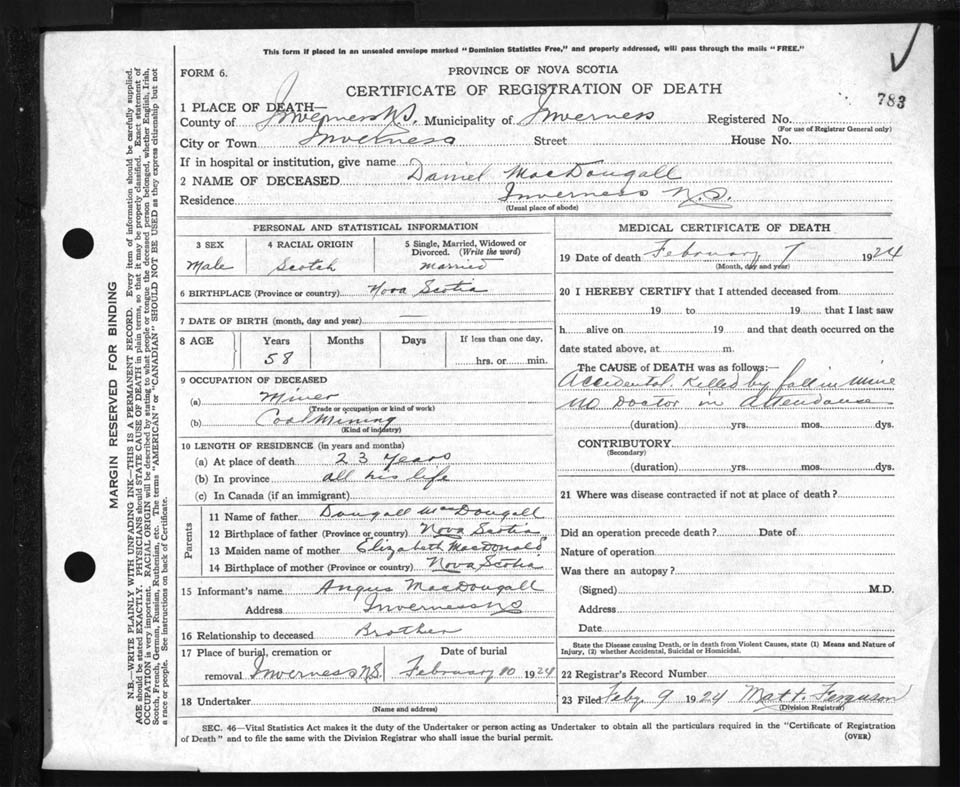 This form if placed in an unsealed envelope marked "Dominion Statistics Free," and properly addressed, will pass through the mails "FREE."
783
FORM 6.
PROVINCE OF NOVA SCOTIA
CERTIFICATE OF REGISTRATION OF DEATH
1 PLACE OF DEATH—
County of Inverness N.S. Municipality of Inverness Registered No.
(For use of Registrar General only)
City or Town Inverness Street House No.
If in hospital or institution, give name
2 NAME OF DECEASED Daniel MacDougall
Residence Inverness N.S.
(Usual place of abode)
PERSONAL AND STATISTICAL INFORMATION
3 SEX 4 RACIAL ORIGIN 5 Single, Married, Widowed or Divorced. (Write the word)
Male Scotch Married
6 BIRTHPLACE (Province or country) Nova Scotia
7 DATE OF BIRTH (month, day and year) —
8 AGE Years Months Days If less than one day,
58 hrs. or min.
9 OCCUPATION OF DECEASED
(a) Miner
(Trade or occupation or kind of work)
(b) Coal Mining
(Kind of industry)
10 LENGTH OF RESIDENCE (in years and months)
(a) At place of death 23 Years
(b) In province all his life
(c) In Canada (if an immigrant)
Parents
11 Name of father Dougall MacDougall
12 Birthplace of father (Province or country) Nova Scotia
13 Maiden name of mother Elizabeth MacDonald
14 Birthplace of mother (Province or country) Nova Scotia
15 Informant's name Angus MacDougall
Address Inverness NS
16 Relationship to deceased Brother
17 Place of burial, cremation or Date of burial
removal Inverness N.S. February 10 1924
18 Undertaker
(Name and address)
MEDICAL CERTIFICATE OF DEATH
19 Date of death February 7 1924
(Month, day and year)
20 I HEREBY CERTIFY that I attended deceased from
19 to 19 that I last saw
h alive on 19 and that death occurred on the
date stated above, at m.
The CAUSE of DEATH was as follows:—
Accidental. Killed by fall in mine
no Doctor in attendance
(duration) yrs. mos. dys.
CONTRIBUTORY
(Secondary)
(duration) yrs. mos. dys.
21 Where was disease contracted if not at place of death?
Did an operation precede death? Date of
Nature of operation
Was there an autopsy?
(Signed) M.D.
Address
Date
State the Disease causing Death, or in death from Violent Causes, state (1) Means and Nature of
Injury, (2) whether Accidental, Suicidal or Homicidal.
22 Registrar's Record Number
23 Filed Feby 9 1924 Matt. Ferguson
(Division Registrar)
SEC. 46—Vital Statistics Act makes it the duty of the Undertaker or person acting as Undertaker to obtain all the particulars required in the "Certificate of Registration
of Death" and to file the same with the Division Registrar who shall issue the burial permit.
(OVER)
MARGIN RESERVED FOR BINDING
N.B.—WRITE PLAINLY WITH UNFADING INK—THIS IS A PERMANENT RECORD. Every item of information should be carefully supplied.
AGE should be stated EXACTLY. PHYSICIANS should STATE CAUSE OF DEATH in plain terms, so that it may be properly classified. Exact statement of
OCCUPATION is very important. RACIAL ORIGIN will be described by stating to what people or tongue the deceased person belonged, whether English, Irish,
Scotch, French, German, Russian, Ruthenian, etc. The terms "AMERICAN" or "CANADIAN" SHOULD NOT BE USED as they express citizenship but not
a race or people. See instructions on back of Certificate.